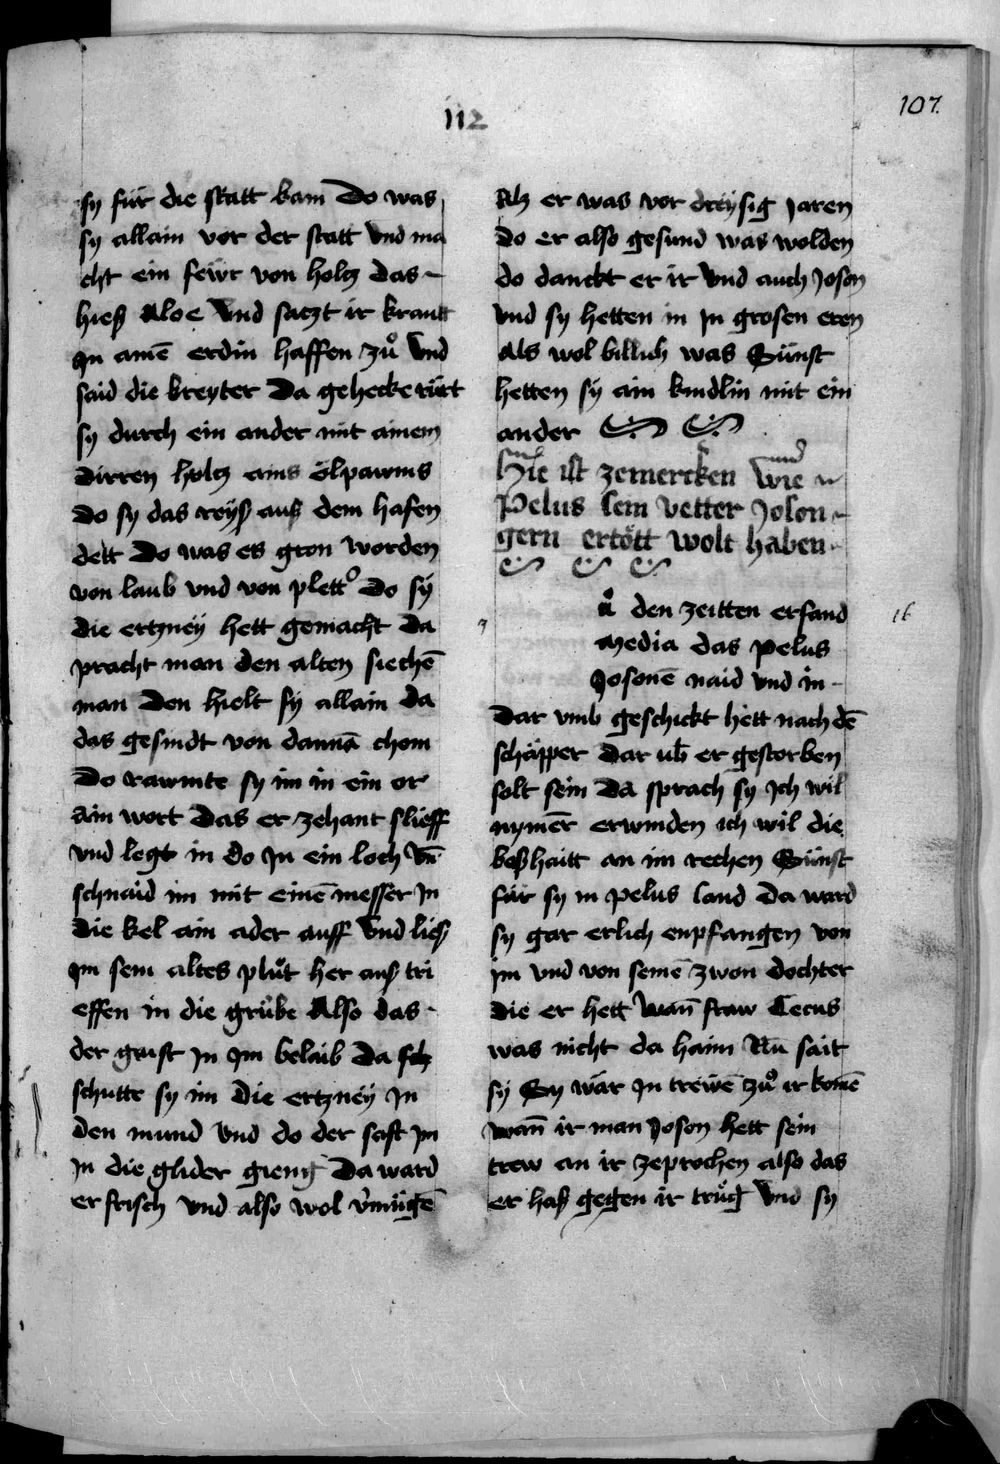 112
107.
sy für die statt kam Do was
sy allain vor der statt Vnd ma
cht ein fewr von holtz das
hieß Aloe Vnd satzt ir krautt
In amē erdin haffen zů Vnd
said die kreyter Da gehecke rürt
sy durch ein ander mit ainem
dirren holtz eins ölpawms
do sy das reyß auß dem hafen
dett Do was es gron worden
von laub vnd von plett Do sy
die ertzney hett gemacht Da
pracht man den alten siechē
man Den hielt sy allain da
das gesindt von dannā chom
Do rawmte sy im in ein or
ain wort Das er zehant slieff
vnd legt in do In ein loch Vn̄
schnaid im mit einē messer In
die kel ain ader auff Vnd ließ
Im sein altes plůt her auß tri
effen in die grůbe Also das
der gaist In Im belaib Da
schutte sy im die ertzney In
den mund Vnd do der saft Im
In die glider gieng Da ward
er frisch Vnd also wol v̄mügē
Alß er was vor dreysig Jaren
do er also gesund was wolden
do danckt er ir Vnd auch Joson
Vnd sy hetten in In grosen eren
Als wol billich was Sünst
hetten sy ain kindlin mit ein
ander
Hie ist zemercken Wie
Pelus sein vetter Joson
gern ertött wolt haben
den zeitten erfand
Media das pelus
Josonē naid vnd in
Dar vmb geschickt hett nach dē
schäpper Dar ub er gestorben
solt sein Da sprach sy Ich wil
nymēr erwinden ich wil die
boßhaitt an im rechen Sünst
für sy in pelus land da ward
sy gar erlich enpfangen von
im vnd von seinē zwon dochter
die er hett Wan̄ fraw Cecus
was nicht da haim Nu sait
sy Sy wär In trewē zů ir komē
Wan̄ ir man Joson hett sein
trew an ir zeprochen also das
er haß gegen ir trůg Vnd sy
16